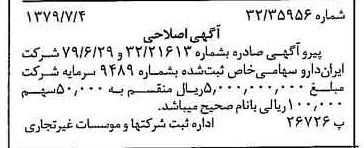 شماره ۳۲/۳۵۹۵۶ ۱۳۷۹/۷/۴
آگهی اصلاحی
پیرو آگهی صادره بشماره ۳۲/۲۱۶۱۳ و ۷۹/۶/۲۹ شرکت
ایران‌دارو سهامی‌خاص ثبت‌شده بشماره ۹۴۸۹ سرمایه شرکت
مبلغ ۵,۰۰۰,۰۰۰,۰۰۰ریال منقسم به ۵۰,۰۰۰سهم
۱۰۰,۰۰۰ریالی بانام صحیح میباشد.
پ ۲۶۷۲۶ اداره ثبت شرکتها و موسسات غیرتجاری